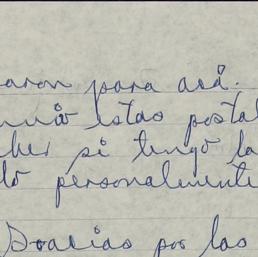 aron para acá.
estas postal
ber si tengo la
lo personalmente
Gracias por las